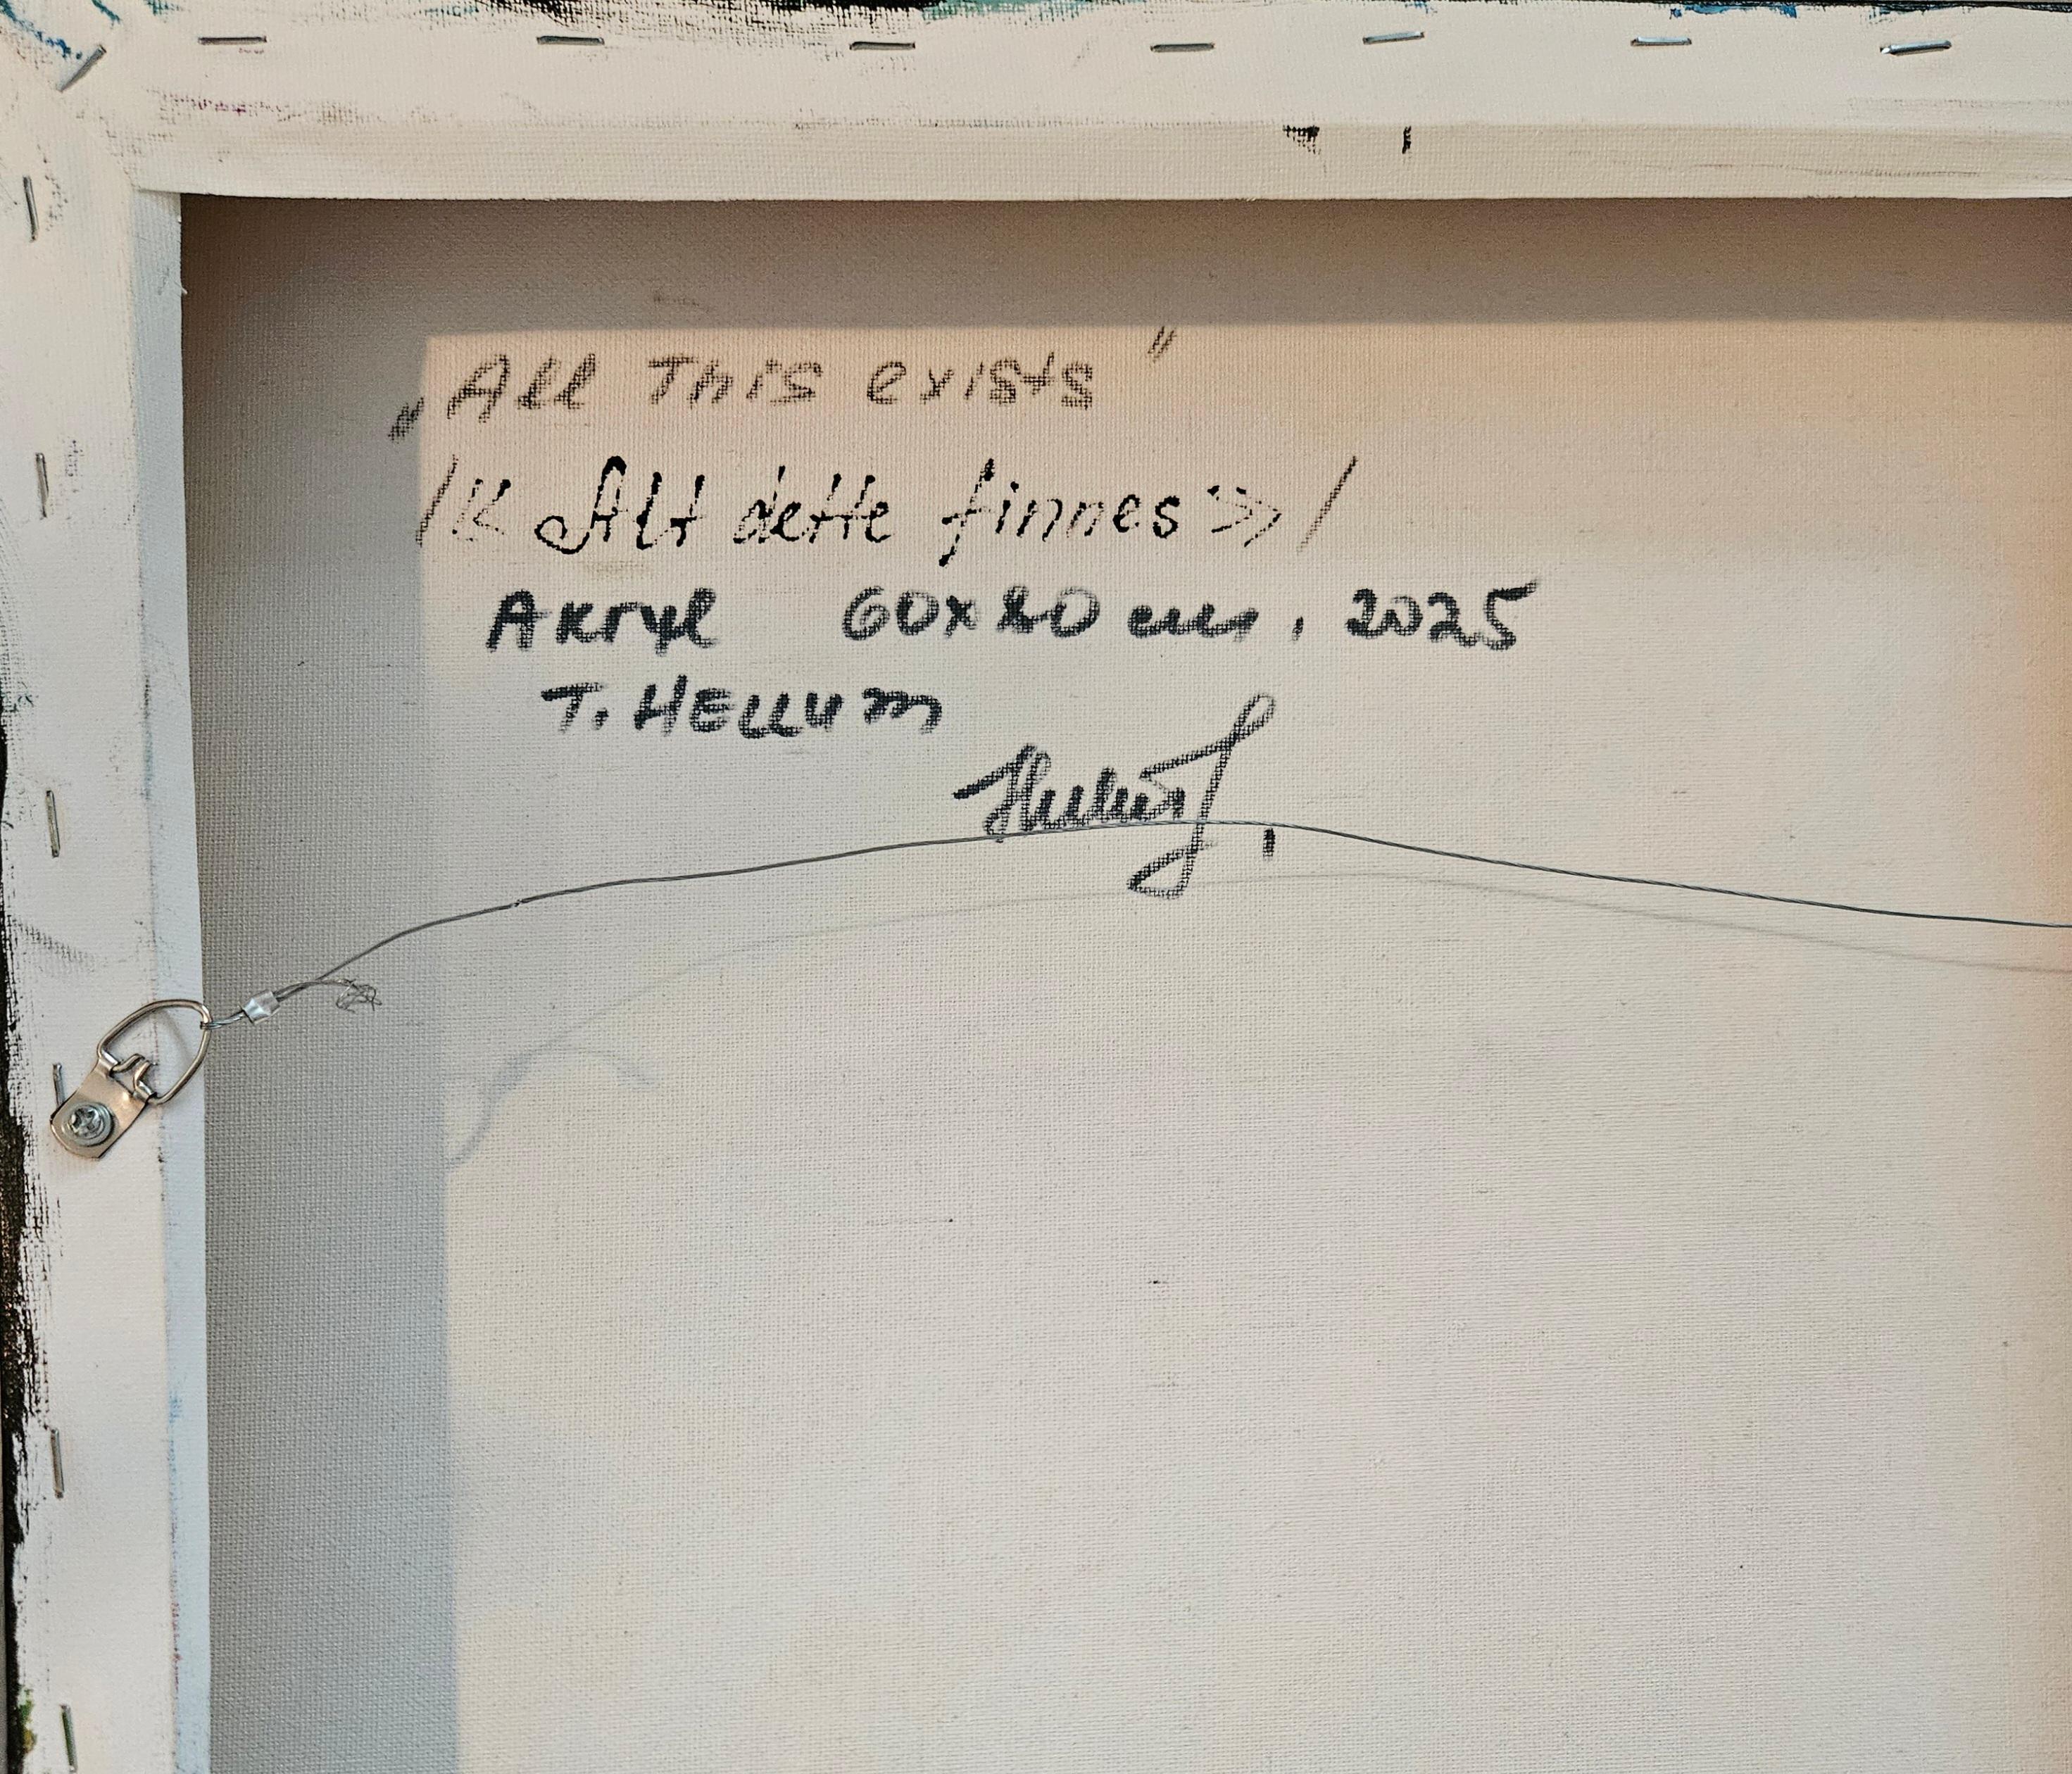 „All This exists"
/«Alt dette finnes»/
Akryl 60x80 cm, 2025
T. HELLUM